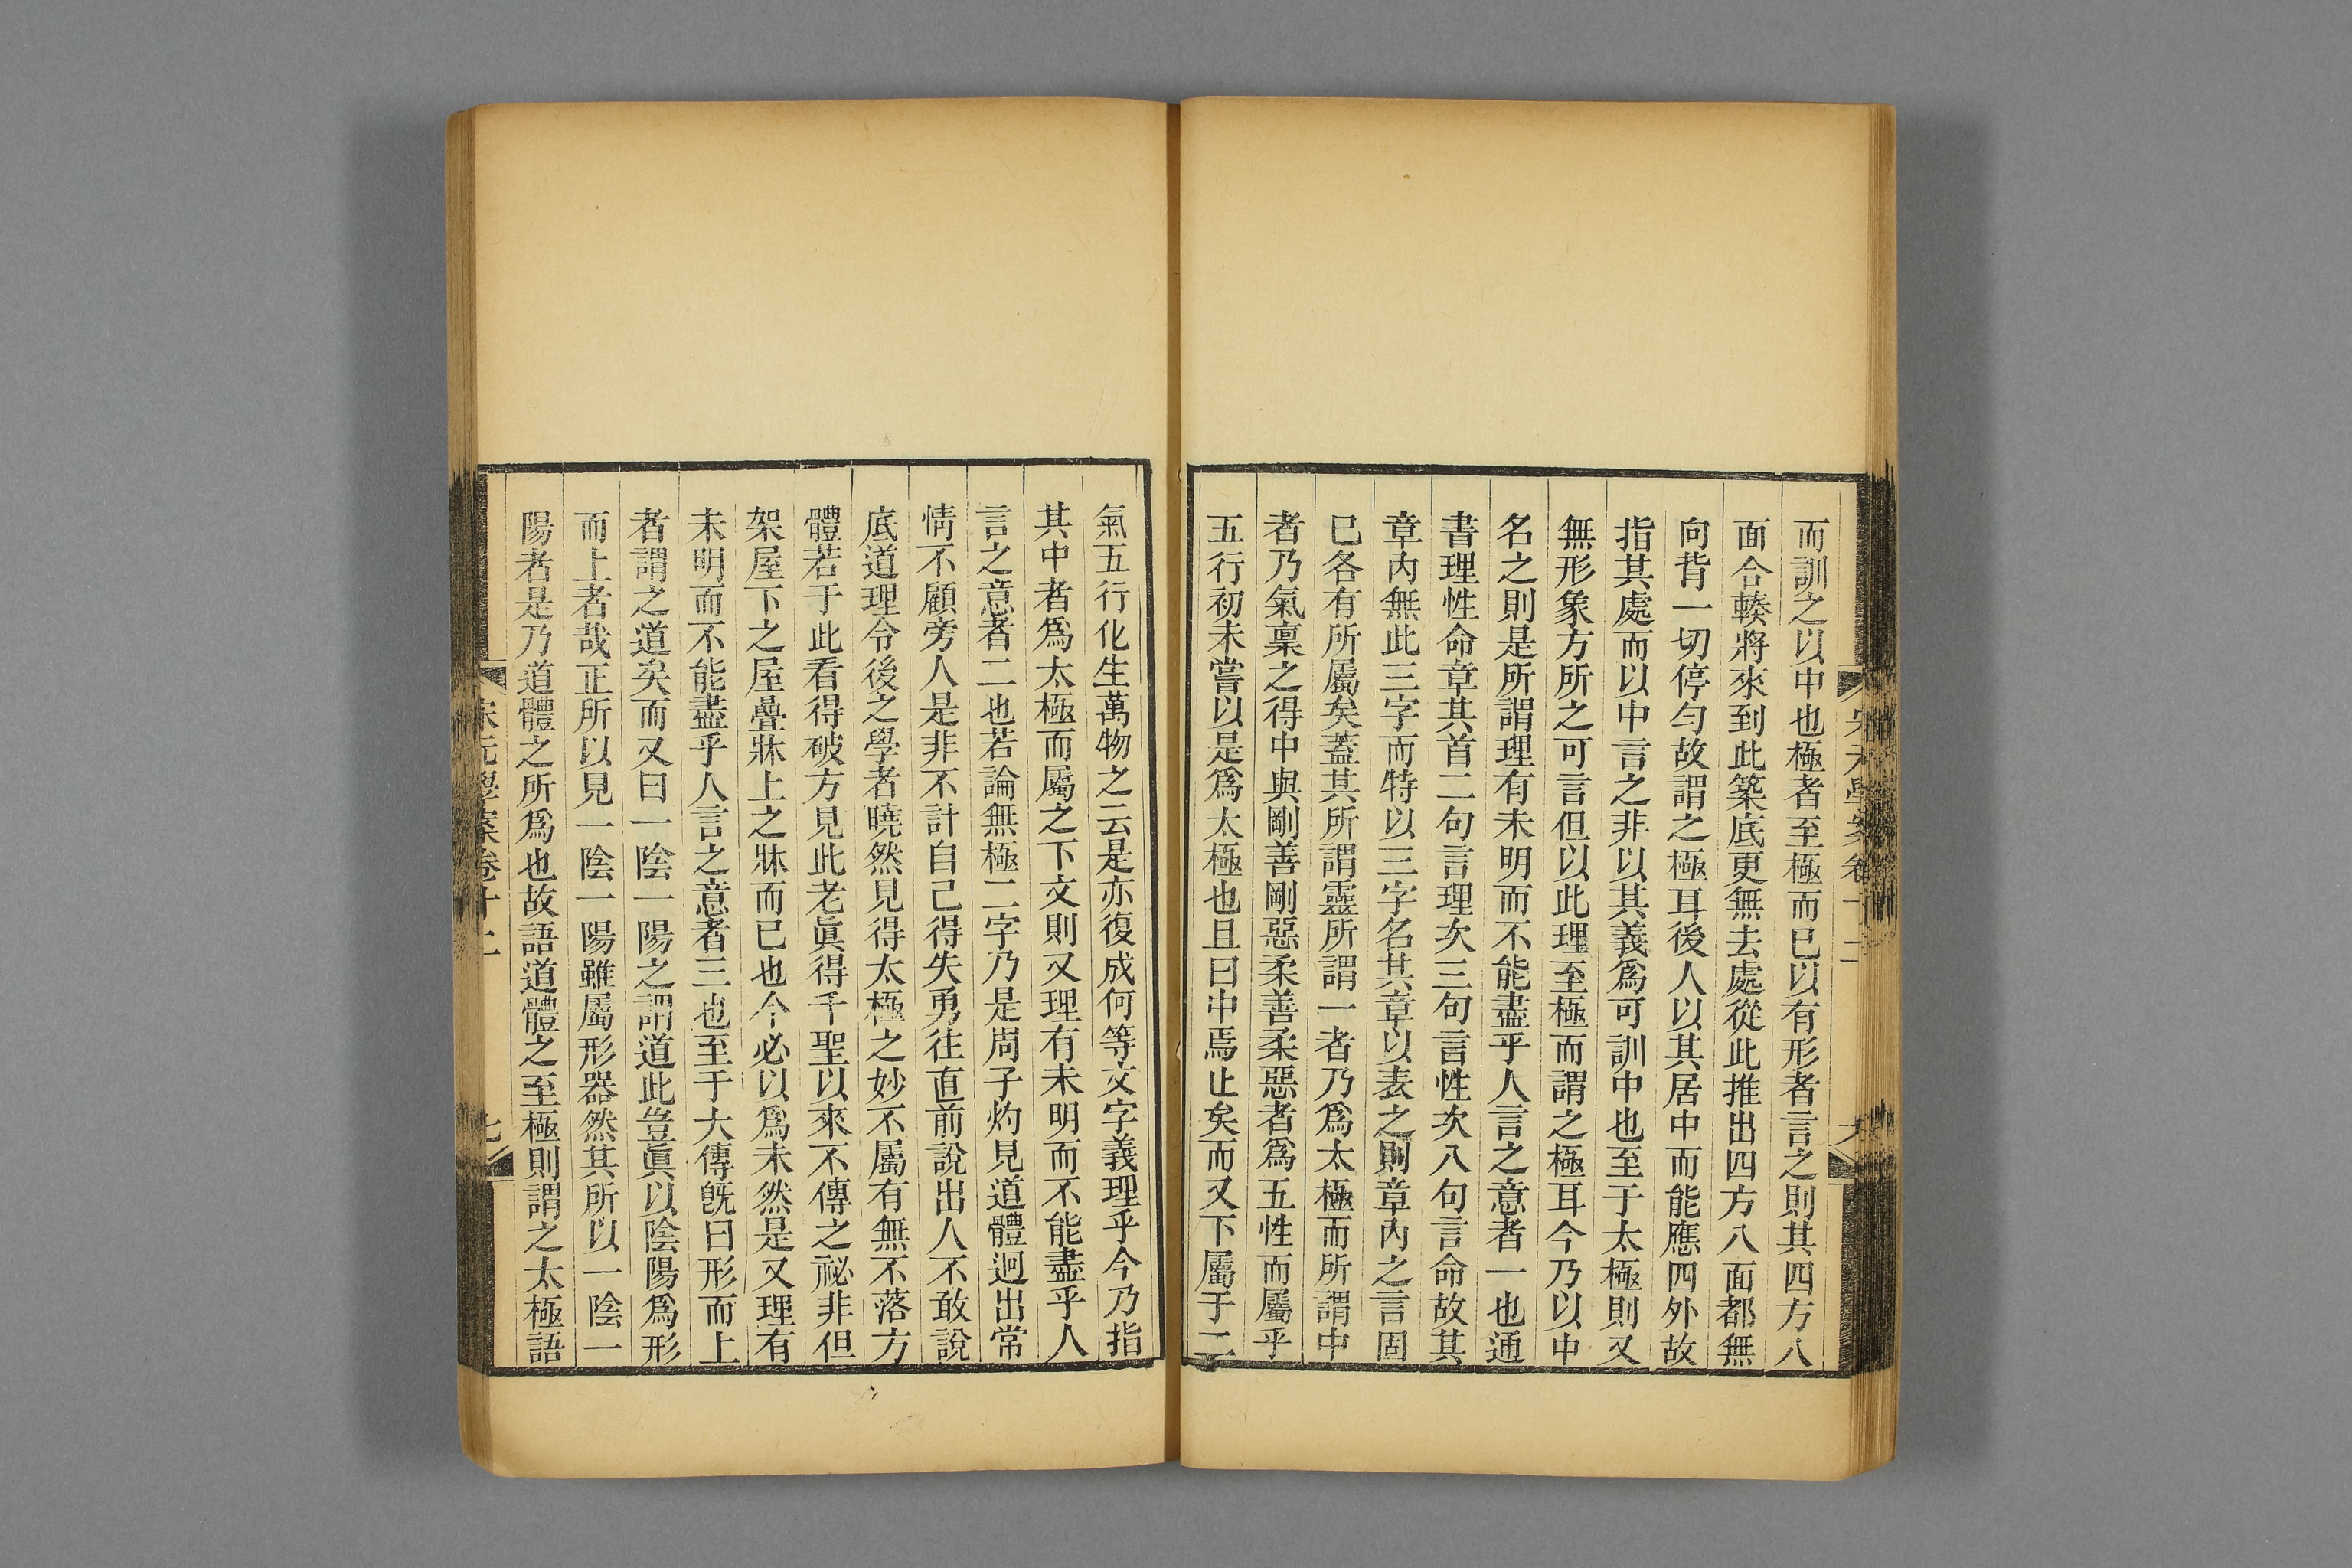 而訓之以中也極者至極而巳以有形者言之則其四方八
面合輳將來到此築底更無去處從此推出四方八面都無
向背一切停勻故謂之極耳後人以其居中而能應四外故
指其處而以中言之非以其義爲可訓中也至于太極則又
無形象方所之可言但以此理至極而謂之極耳今乃以中
名之則是所謂理有未明而不能盡乎人言之意者一也通
書理性命章其首二句言理次三句言性次八句言命故其
章內無此三字而特以三字名其章以表之則章內之言固
巳各有所屬矣蓋其所謂靈所謂一者乃爲太極而所謂中
者乃氣稟之得中與剛善剛惡柔善柔惡者爲五性而屬乎
五行初未嘗以是爲太極也且曰中焉止矣而又下屬于二
氣五行化生萬物之云是亦復成何等文字義理乎今乃指
其中者爲太極而屬之下文則又理有未明而不能盡乎人
言之意者二也若論無極二字乃是周子灼見道體迥出常
情不顧旁人是非不計自己得失勇往直前說出人不敢說
底道理令後之學者曉然見得太極之妙不屬有無不落方
體若于此看得破方見此老眞得千聖以來不傳之祕非但
架屋下之屋疊牀上之牀而已也今必以爲未然是又理有
未明而不能盡乎人言之意者三也至于大傳旣曰形而上
者謂之道矣而又曰一陰一陽之謂道此豈眞以陰陽爲形
而上者哉正所以見一陰一陽雖屬形器然其所以一陰一
陽者是乃道體之所爲也故語道體之至極則謂之太極語
宋元學案卷十二
七